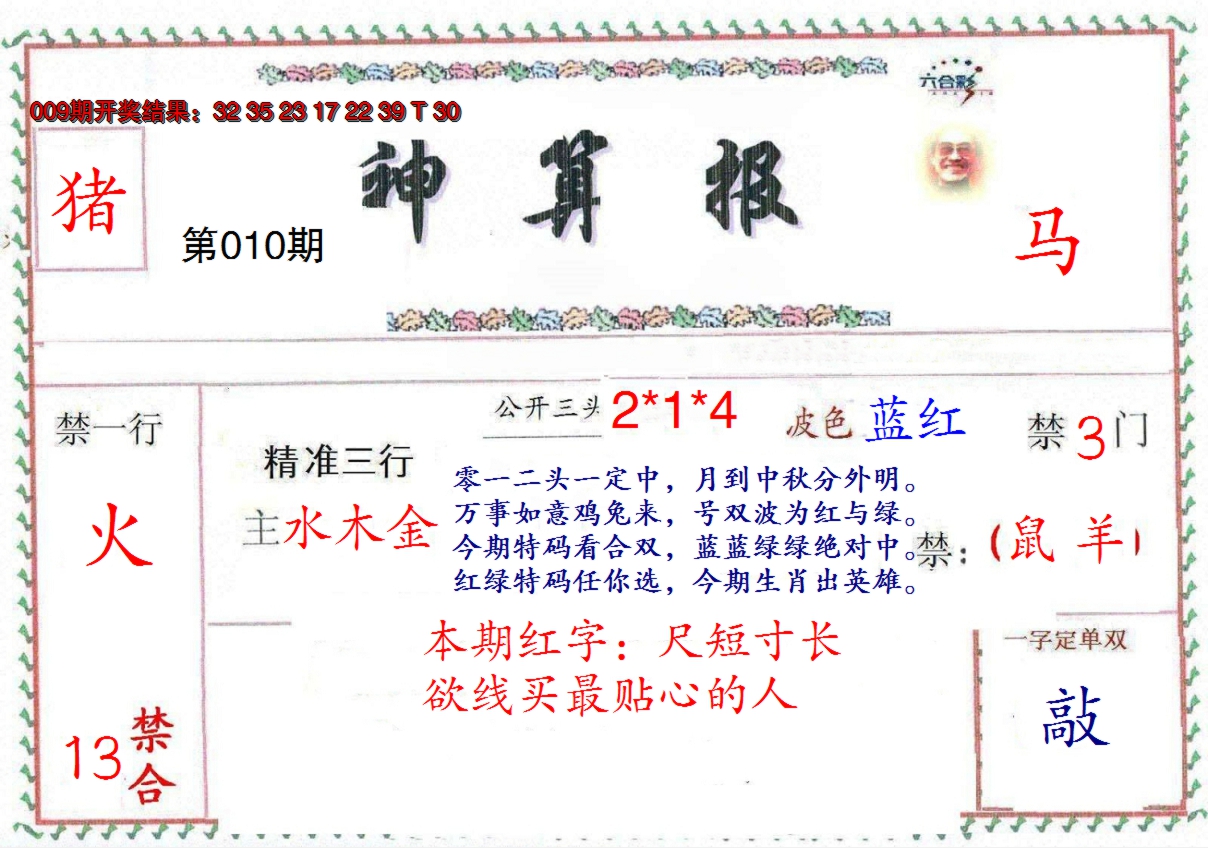 六合彩
009期开奖结果：32 35 23 17 22 39 T 30
猪
神算报
第010期
马
公开三头 2*1*4
波色 蓝红
禁3门
禁一行
火
精准三行
主水木金
零一二头一定中，月到中秋分外明。
万事如意鸡兔来，号双波为红与绿。
今期特码看合双，蓝蓝绿绿绝对中。
红绿特码任你选，今期生肖出英雄。
禁：（鼠 羊）
本期红字：尺短寸长
欲线买最贴心的人
一字定单双
敲
13禁合